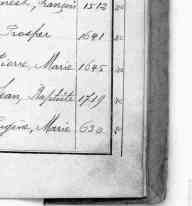 nest, François 1512 "
Prosper 1641 "
Pierre, Marie 1645 "
Jean, Baptiste 1719 "
Eugène, Marie 630 "